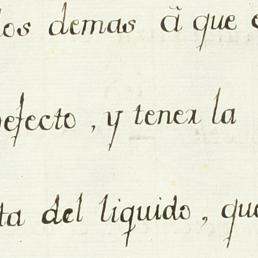 los demas â que e
pefecto, y tener la
ta del liquido, que